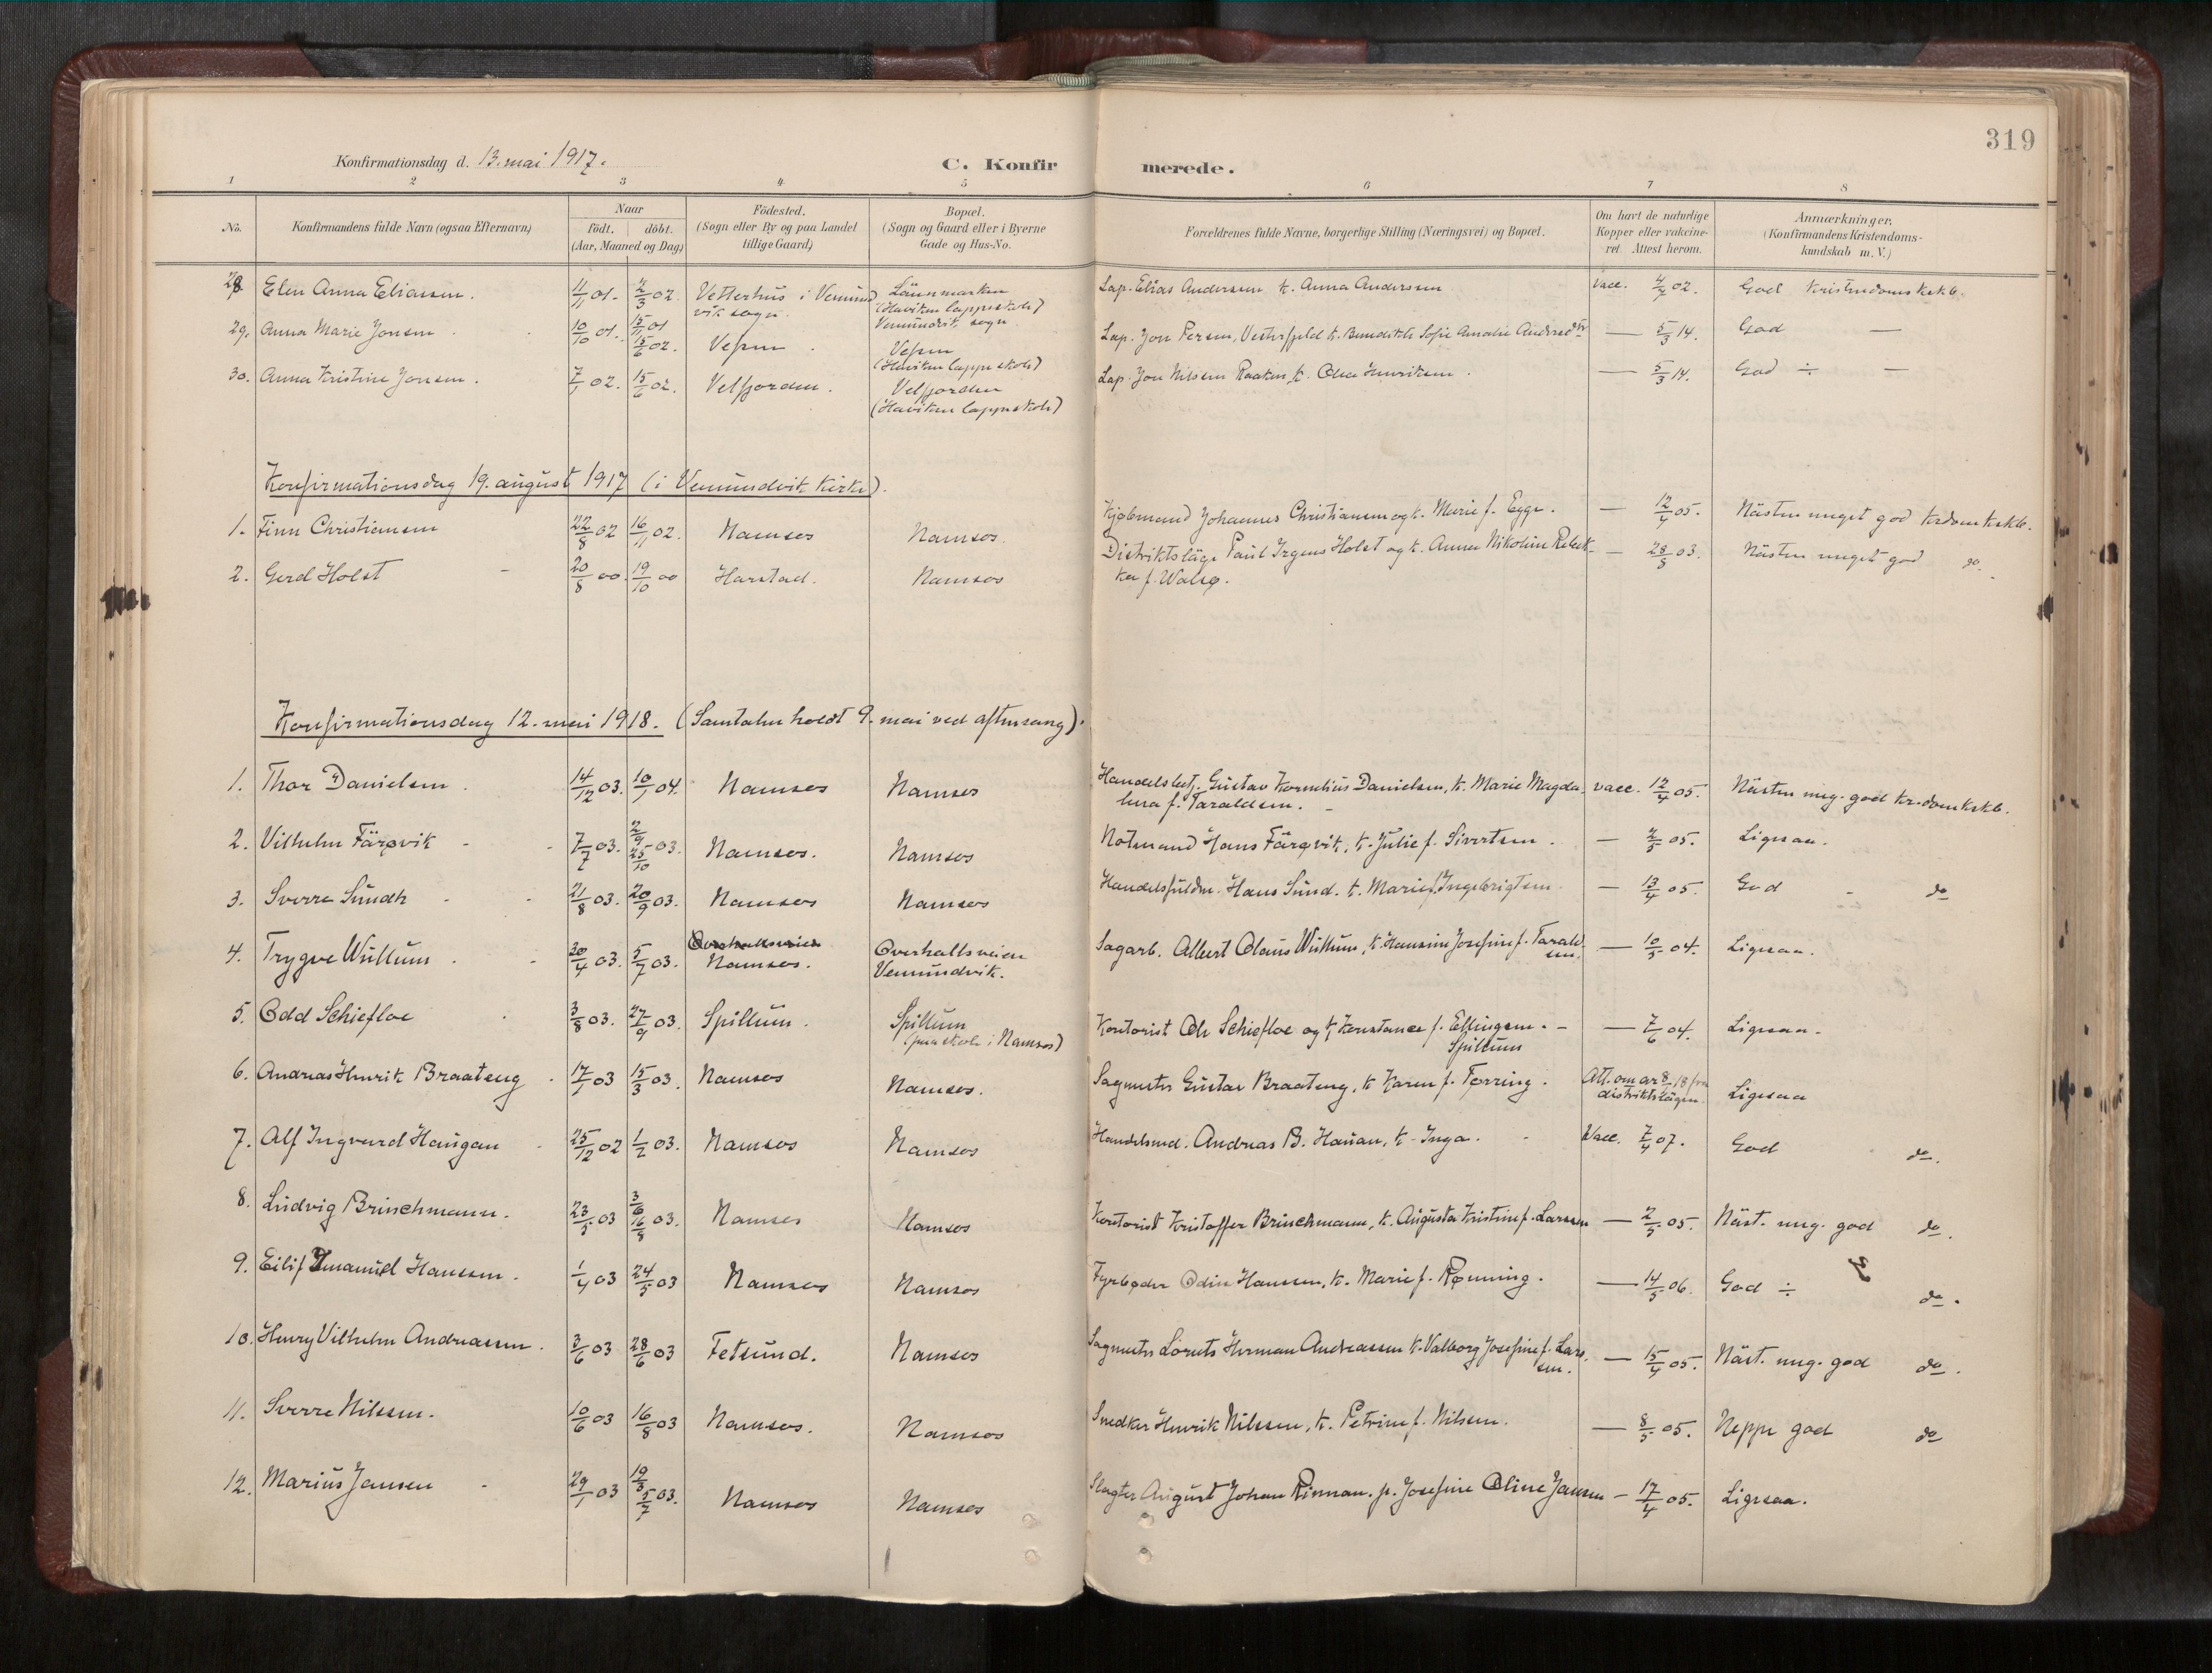 319
Konfirmationsdag d. 13. mai 1917.
C. Konfirmerede.
1 2 3 4 5 6 7 8
No.
Konfirmandens fulde Navn (ogsaa Efternavn)
Naar
födt. döbt.
(Aar, Maaned og Dag)
Födested.
(Sogn eller By og paa Landet
tillige Gaard)
Bopæl.
(Sogn og Gaard eller i Byerne
Gade og Hus-No.
Forældrenes fulde Navne, borgerlige Stilling (Næringsvei) og Bopæl.
Om havt de naturlige
Kopper eller vakcine-
ret. Attest herom.
Anmærkninger,
(Konfirmandens Kristendoms-
kundskab m. V.)
28 Elen Anna Eliassen. 11/11 01. 2/3 02. Vetterhus i Vemund
vik sogn.
(Haviken lappeskole)
Vemundvik sogn
Lap. Elias Andersen k. Anna Andersen vacc. 4/7 02. God kristendomskskb.
29. Anna Marie Jonsen 10/10 01. 15/11 01 15/6 02. Vefsen Vefsen
(Haviken lappeskole)
Lap. Jon Persen, Vesterfjeld k. Benedikte Sofie Amalie Andersdtr — 5/3 14. God —
30. Anna Kristine Jonsen. 7/1 02. 15/6 02. Velfjorden. Velfjorden
(Haviken lappeskole)
Lap. Jon Nilssen Raaken, k. Olea Henriksen. — 5/3 14. God ÷ —
Konfirmationsdag 19. august 1917 (i Vemundvik kirke).
1. Finn Christiansen 22/8 02 16/11 02. Namsos Namsos.
Kjøbmand Johannes Christiansen og k. Marie f. Egge. — 12/4 05. Nästen meget god krdomskskb.
2. Gerd Holst 20/8 00. 19/10 00 Harstad. Namsos
Distriktsläge Paul Irgens Holst og k. Anna Nikoline Rebek-
ka f. Walsø. — 28/8 03. Nästen meget god do.
Konfirmationsdag 12. mai 1918. (Samtalen holdt 9. mai ved aftensang).
1. Thor Danielsen. 14/12 03. 10/1 04. Namsos Namsos
Handelsbest. Gustav Kornelius Danielsen, k. Marie Magda-
lena f. Taraldsen. vacc. 12/4 05. Nästen meg. god kr.domskskb.
2. Vilhelm Färøvik 7/7 03. 2/9 25/10 03. Namsos. Namsos
Notmand Hans Färøvik, k. Julie f. Sivertsen. — 2/5 05. Ligesaa.
3. Sverre Sundh 21/8 03. 20/9 03. Namsos Namsos
Handelsfuldm. Hans Sund. k. Marie f. Ingebrigtsen. — 13/4 05. God do
4. Trygve Wullum. 20/4 03. 5/7 03. Overhallsveien
Namsos. Overhallsveien
Vemundvik.
Sagarb. Albert Olaus Wullum, k. Hansine Josefine f. Tarald-
sen. — 10/5 04. Ligesaa.
5. Odd Schiefloe 3/8 03. 27/9 03. Spillum. Spillum
(paa skole i Namsos)
Kontorist Ole Schiefloe og k. Konstance f. Ellingsen. —
Spillum — 7/6 04. Ligesaa.
6. Andreas Henrik Braateng 17/1 03 15/3 03. Namsos Namsos.
Sagmester Gustav Braateng, k. Karen f. Tørring. Att. om ar 8/ 18 fra
distriktslägen. Ligesaa
7. Alf Ingvard Haugan 25/12 02 1/2 03. Namsos Namsos
Handelsmd. Andreas B. Hauan, k. Inga. Vacc. 7/4 07. God do.
8. Ludvig Brinchmann. 23/5 03 3/6 16/8 03. Namsos Namsos
Kontorist Kristoffer Brinchmann, k. Augusta Kristine f. Larssen — 2/5 05. Näst. meg. god do.
9. Eilif Emanuel Hanssen. 1/4 03 24/5 03 Namsos Namsos
Fyrbøder Odin Hanssen, k. Marie f. Rønning. — 14/5 06. God ÷ do.
10. Henry Vilhelm Andreassen. 3/6 03 28/6 03 Fetsund. Namsos
Sagmester Lorents Herman Andreassen k. Valborg Josefine f. Lars-
sen. — 15/4 05. Näst. meg. god do.
11. Sverre Nilssen. 10/6 03 16/8 03 Namsos. Namsos
Snedker Henrik Nilssen, k. Petrine f. Nilsen. — 8/5 05. Neppe god do
12. Marius Jansen 29/1 03 19/3 5/7 03. Namsos Namsos
Slagter August Johan Rinnan. p. Josefine Oline Jansen — 17/4 05. Ligesaa.